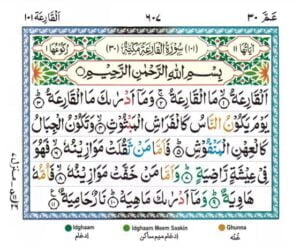 عَمَّ ٣٠ ٦٠٧ اَلْقَارِعَة ١٠١
اٰيَاتُهَا ١١ (١٠١) سُوْرَةُ الْقَارِعَةِ مَكِّيَّةٌ (٣٠) رُكُوْعُهَا ١
بِسْمِ اللّٰهِ الرَّحْمٰنِ الرَّحِيْمِ
اَلْقَارِعَةُ ۙ﴿١﴾ مَا الْقَارِعَةُ ۚ﴿٢﴾ وَمَاۤ اَدْرٰىكَ مَا الْقَارِعَةُ ؕ﴿٣﴾
يَوْمَ يَكُوْنُ النَّاسُ كَالْفَرَاشِ الْمَبْثُوْثِ ۙ﴿٤﴾ وَتَكُوْنُ الْجِبَالُ
كَالْعِهْنِ الْمَنْفُوْشِ ؕ﴿٥﴾ فَاَمَّا مَنْ ثَقُلَتْ مَوَازِيْنُهٗ ۙ﴿٦﴾ فَهُوَ
فِيْ عِيْشَةٍ رَّاضِيَةٍ ؕ﴿٧﴾ وَاَمَّا مَنْ خَفَّتْ مَوَازِيْنُهٗ ۙ﴿٨﴾ فَاُمُّهٗ
هَاوِيَةٌ ؕ﴿٩﴾ وَمَاۤ اَدْرٰىكَ مَا هِيَهْ ؕ﴿١٠﴾ نَارٌ حَامِيَةٌ ﴿١١﴾
Idghaam Idghaam Meem Saakin Ghunna
ادغام ادغام میم ساکن غنہ